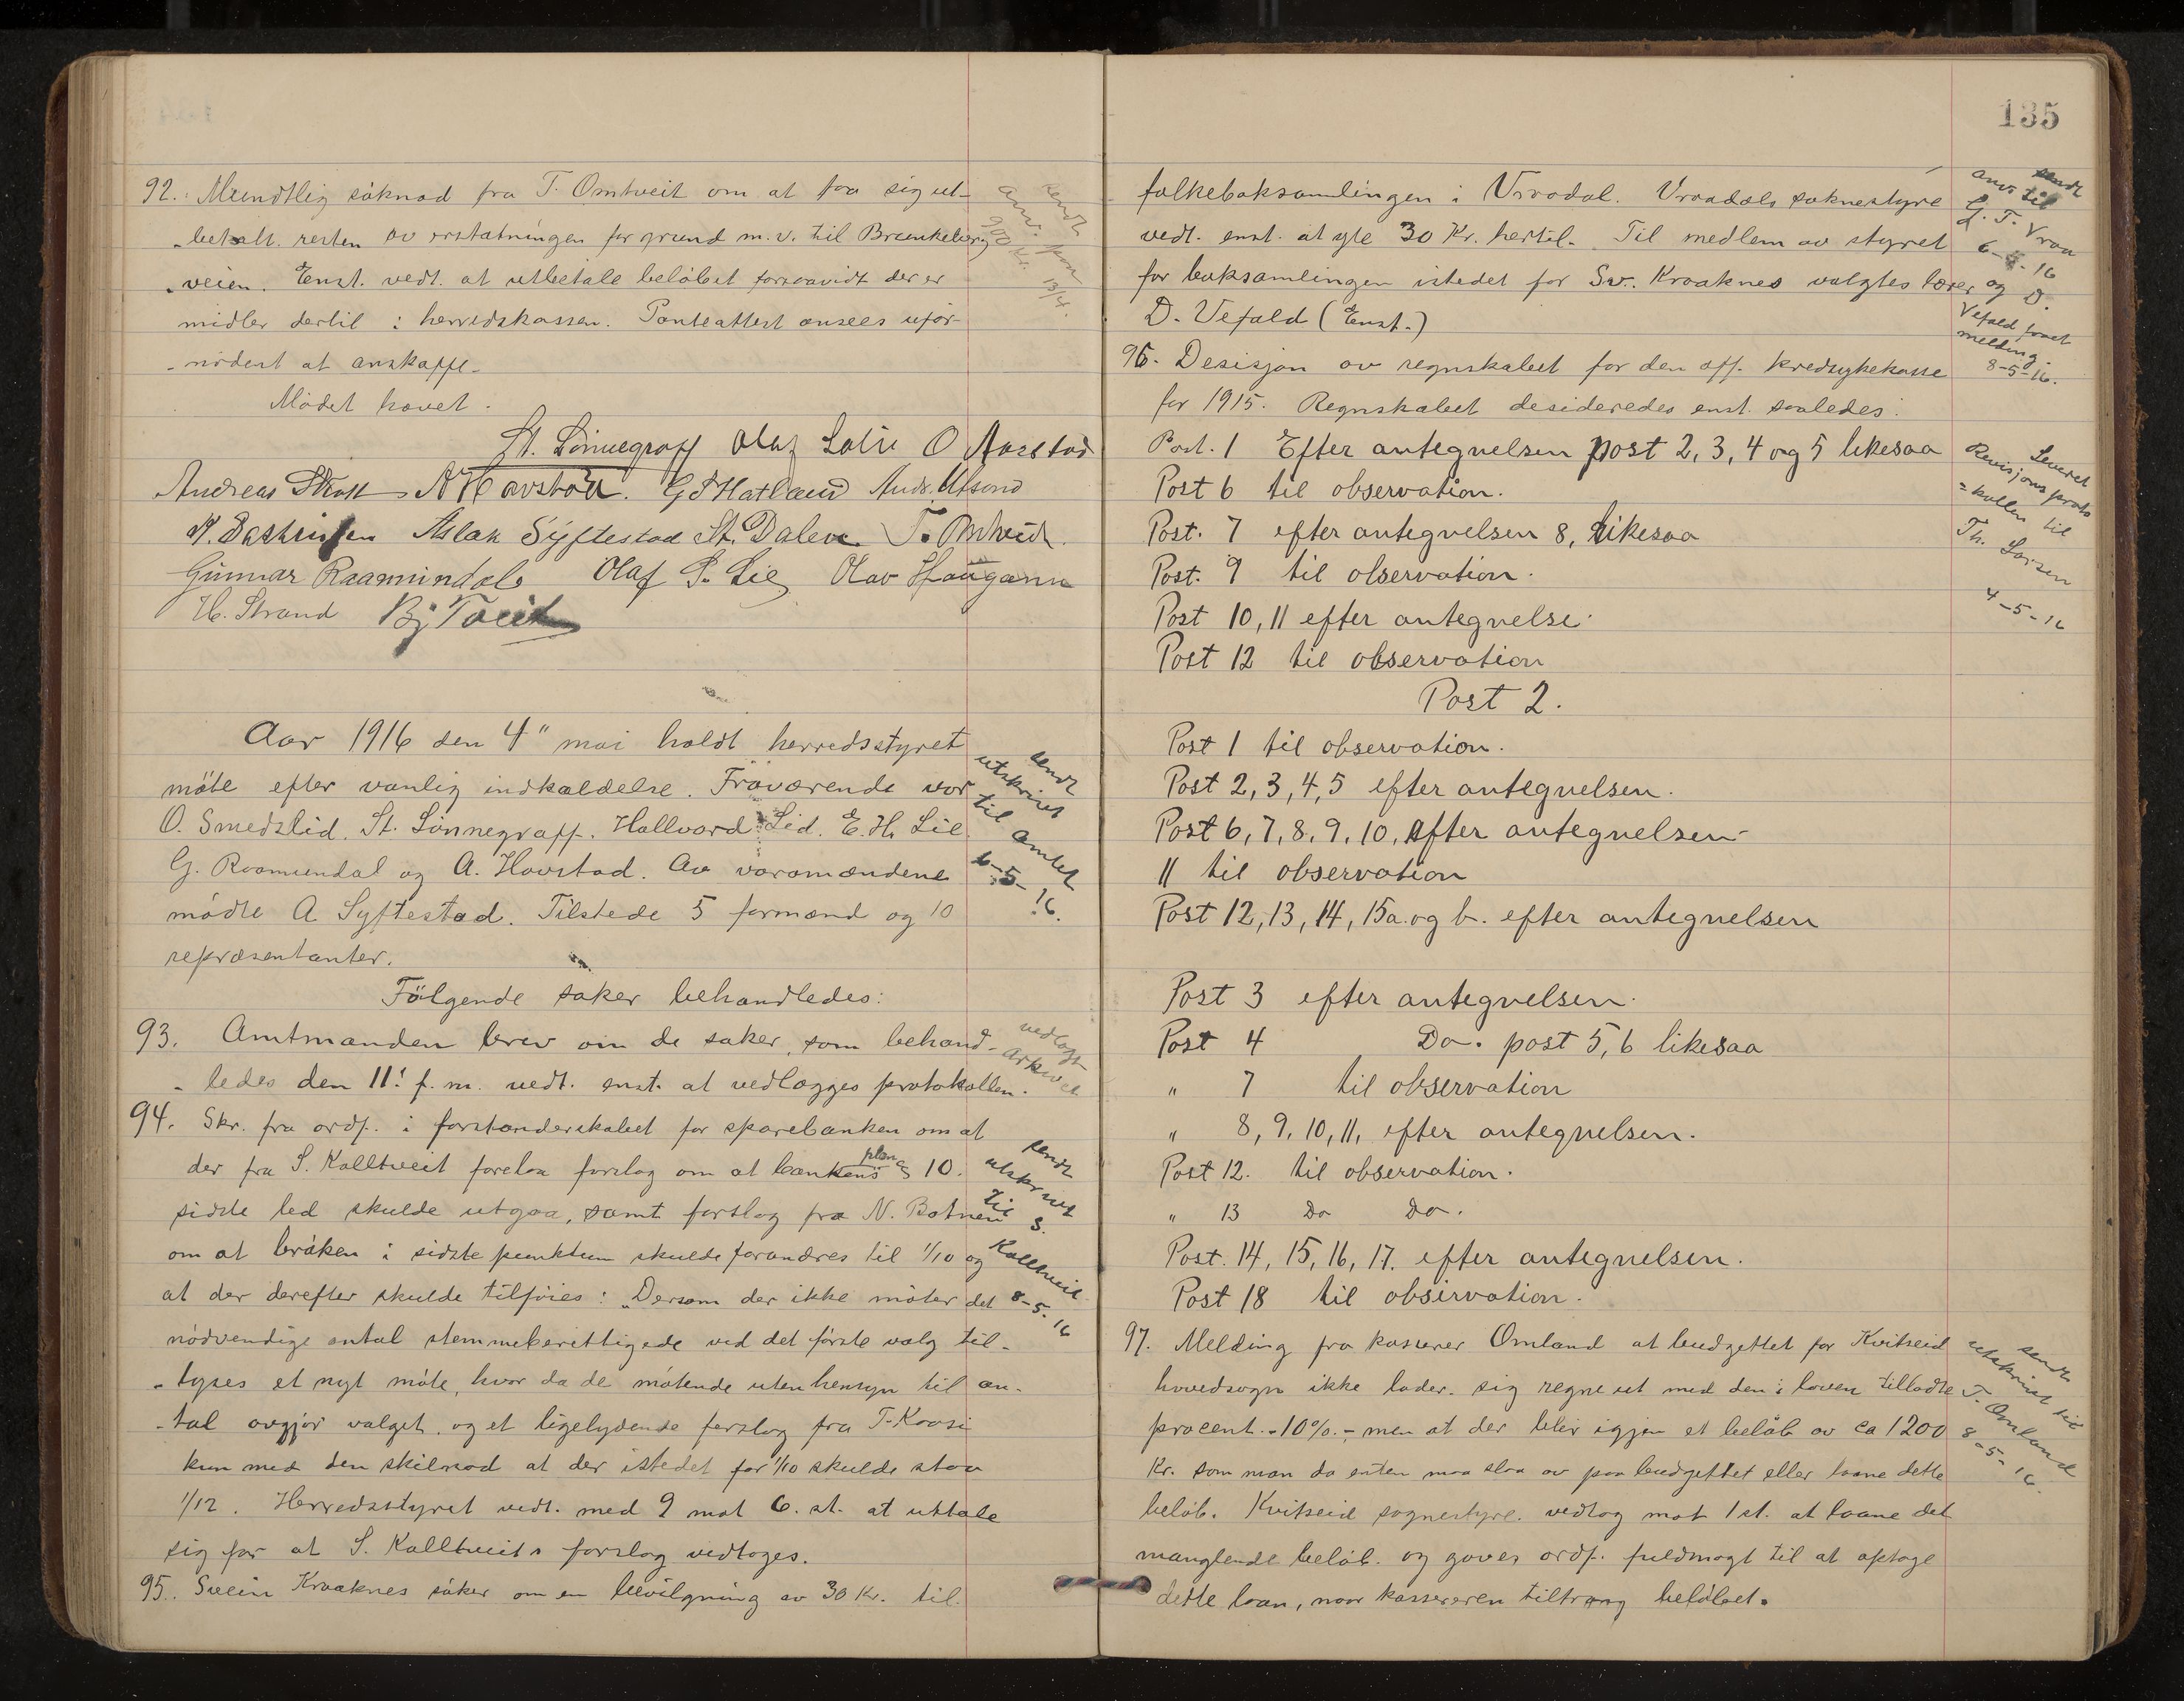 92. Mundtlig søknad fra T. Omtveit om at faa sig ut-
-betalt resten av erstatningen for grund m.v. til Brunkeberg
-veien. Enst. vedt. at utbetale beløbet forsaavidt der er
midler dertil i herredskassen. Panteattest ansees ufor-
-nødent at anskaffe.
Mødet hævet.
sendt
anv. paa
900 Kr. 13/4.
St. Lønnegraff Olaf O Aarstad
Andreas A Havstad. G S Hatland Ands. Utsond
Aslak Syftestad St. Dalen T. Omtveit
Gunnar Raamundal Olaf P. Lie Olav Haugann
H. Strand Bj Tveit
Aar 1916 den 4" mai holdt herredsstyret
møte efter vanlig indkaldelse. Fraværende var
O. Smedslid. St. Lønnegraff. Hallvard Lid. E. H. Lie
G. Raamundal og A. Havstad. Av varamændene
mødte A Syftestad. Tilstede 5 formænd og 10
repræsentanter.
sendt
utskrivt
til amtet
6-5-16.
Følgende saker behandledes:
93. Amtmanden brev om de saker, som behand-
-ledes den 11! f.m. vedt. enst. at vedlægges protokollen.
vedlagt
arkivet
94. Skr. fra ordf. i forstanderskabet for sparebanken om at
der fra S. Kalltveit forelaa forslag om at bankens plan § 10.
sidste led skulde utgaa, samt forslag fra N. Botnen
om at brøken i sidste punktum skulde forandres til 1/10 og
at der derefter skulde tilføies: „Dersom der ikke møter det
nødvendige antal stemmeberettigede ved det første valg til-
-lyses et nyt møte, hvor da de møtende uten hensyn til an-
-tal avgjør valget. og et ligelydende forslag fra T. Kaasi
kun med den skilnad at der istedet for 1/10 skulde staa
1/12. Herredsstyret vedt. med 9 mot 6. st. at uttale
sig for at S. Kalltveits forslag vedtoges.
sendt
utskrivt
til S.
Kalltveit
8-5-16
95. Svein Kraaknes søker om en bevilgning av 30 Kr. til
135
folkeboksamlingen i Vraadal. Vraadals soknestyre
vedt. enst. at yte 30 Kr. hertil. Til medlem av styret
for boksamlingen istedet for Sv. Kraaknes valgtes lærer
D. Vefald (Enst.)
sendt
anv. til
G. T. Vraa
6-5-16
og D.
Vefald sendt
melding.
8-5-16.
96. Desisjon av regnskabet for den off. kredsykekasse
for 1915. Regnskabet desideredes enst. saaledes:
Post. 1 Efter antegnelsen post 2, 3, 4 og 5 likesaa
Post 6 til observation.
Post. 7 efter antegnelsen 8, likesaa
Post. 9 til observation.
Post 10, 11 efter antegnelse
Post 12 til observation
Leveret
Revisjons proto
=kollen til
Th. Larsen
4-5-16
Post 2.
Post 1 til observation.
Post 2, 3, 4, 5 efter antegnelsen.
Post 6, 7, 8, 9, 10, efter antegnelsen
11 til observation
Post 12, 13, 14, 15a. og b. efter antegnelsen
Post 3 efter antegnelsen.
Post 4 Do. post 5, 6 likesaa
" 7 til observation
" 8, 9, 10, 11, efter antegnelsen.
Post 12. til observation.
" 13 Do Do.
Post. 14, 15, 16, 17. efter antegnelsen.
Post 18 til observation.
97. Melding fra kasserer Omland at budgettet for Kvitseid
hovedsogn ikke lader sig regne ut med den i loven tilladte
procent. -10%.- men at der blir igjen et beløb av ca 1200
Kr. som man da enten maa slaa av paa budgettet eller laane dette
beløb. Kvitseid sognestyre. vedtog mot 1 st. at laane det
manglende beløb. og gaves ordf. fuldmagt til at optage
dette laan, naar kassereren tiltræng beløbet.
sendt
utskrivt til
T. Omland
8-5-16.